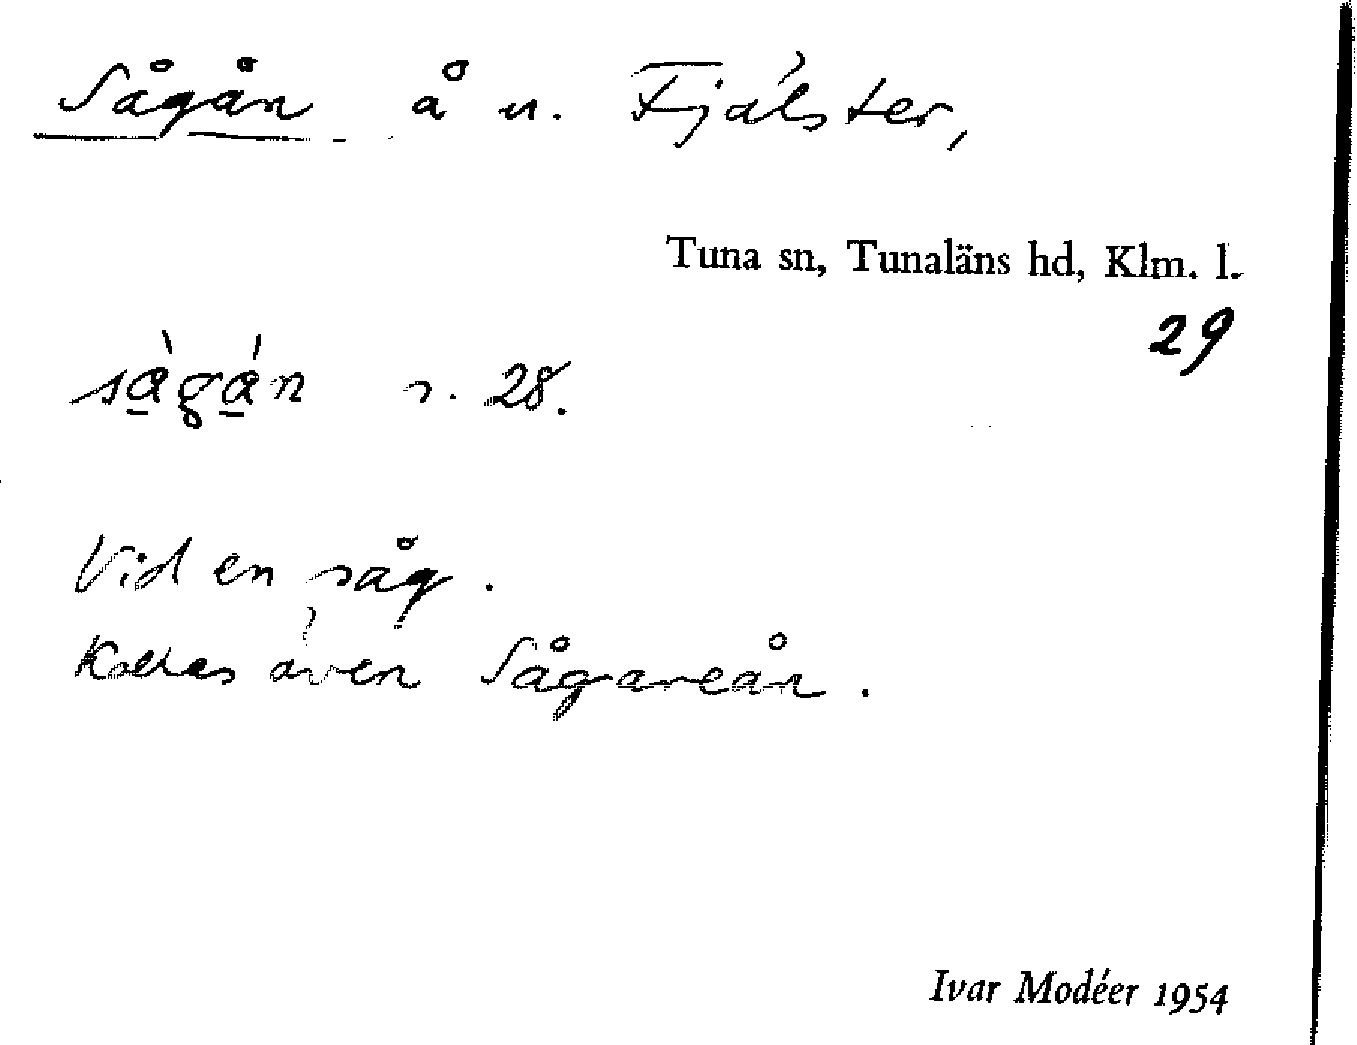 Sågån å n. Fjälster,
Tuna sn, Tunaläns hd, Klm. l.
29
sàgán s. 28.
Vid en såg.
Kallas även Sågareån.
Ivar Modéer 1954